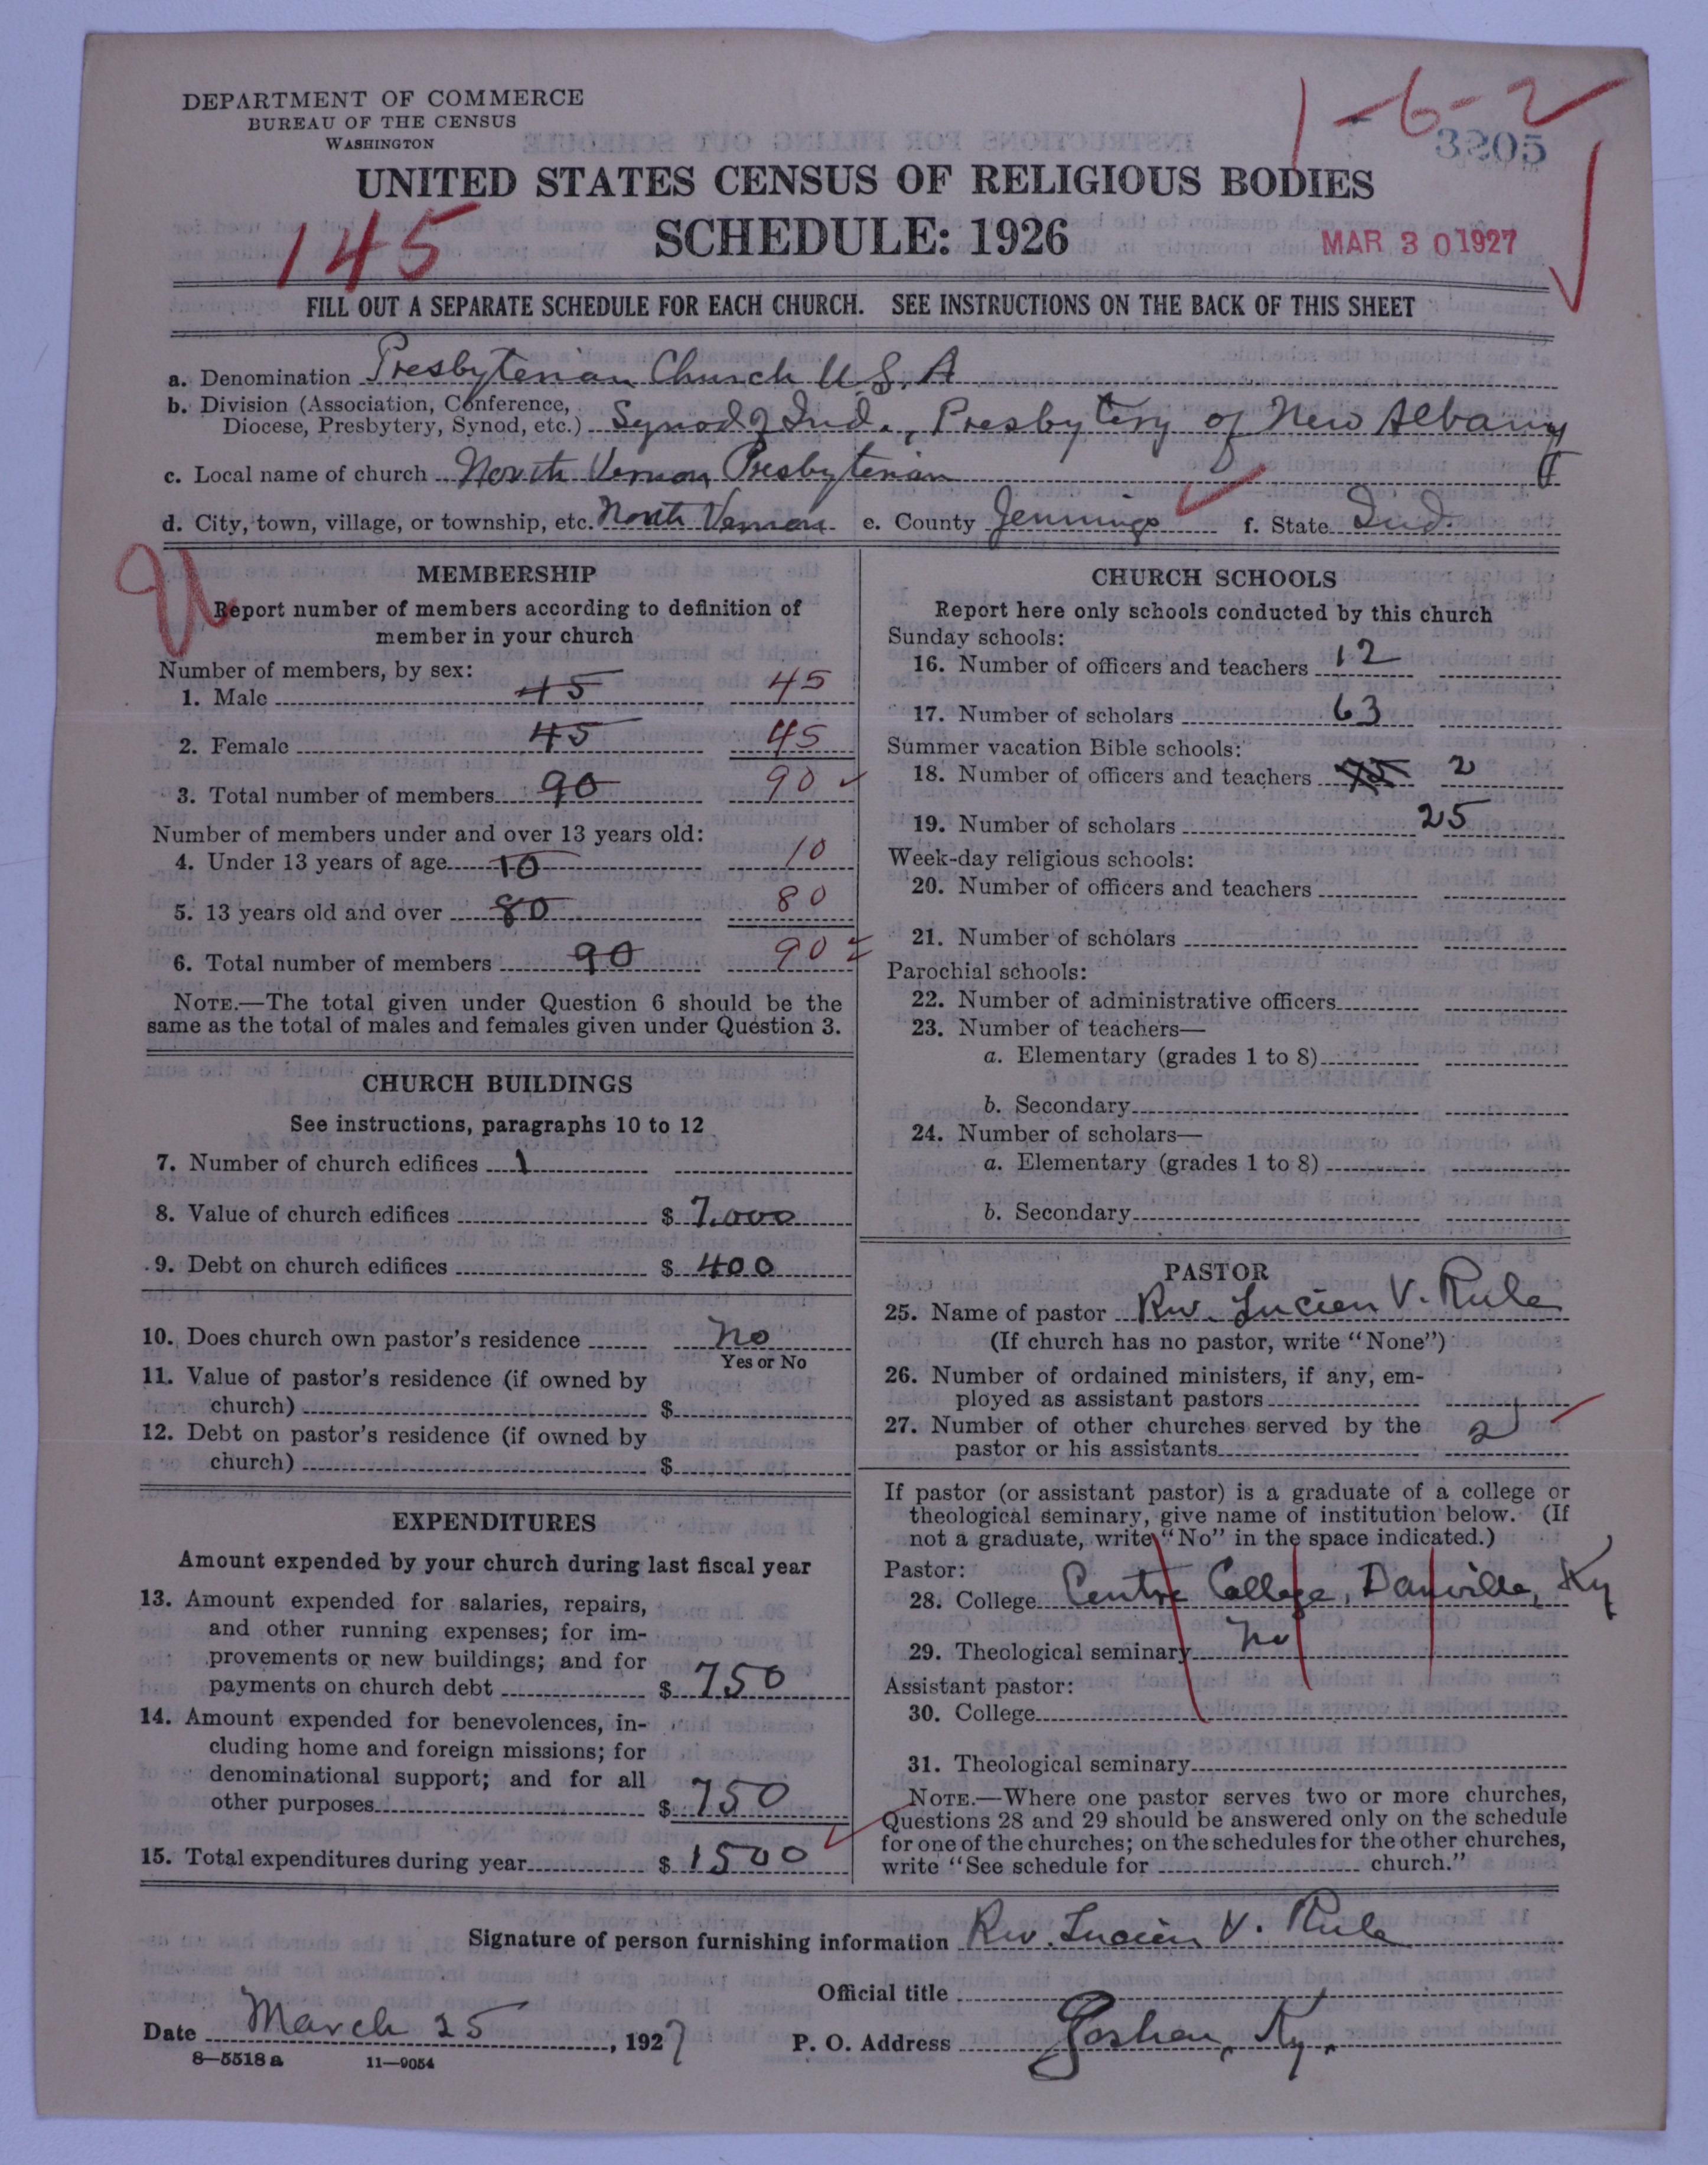 DEPARTMENT OF COMMERCE
BUREAU OF THE CENSUS
WASHINGTON
1-6-2
3205
UNITED STATES CENSUS OF RELIGIOUS BODIES
145
SCHEDULE: 1926
MAR 30 1927
FILL OUT A SEPARATE SCHEDULE FOR EACH CHURCH. SEE INSTRUCTIONS ON THE BACK OF THIS SHEET
a. Denomination Presbyterian Church U.S.A
b. Division (Association, Conference,
Diocese, Presbytery, Synod, etc.) Synod of Ind., Presbytery of New Albany
c. Local name of church North Vernon Presbyterian
d. City, town, village, or township, etc. North Vernon e. County Jennings f. State Ind.
U
MEMBERSHIP
Report number of members according to definition of
member in your church
Number of members, by sex:
1. Male 45 45
2. Female 45 45
3. Total number of members 90 90
Number of members under and over 13 years old:
4. Under 13 years of age 10 10
5. 13 years old and over 80 80
6. Total number of members 90 90
NOTE.—The total given under Question 6 should be the
same as the total of males and females given under Question 3.
CHURCH BUILDINGS
See instructions, paragraphs 10 to 12
7. Number of church edifices 1
8. Value of church edifices $ 7.000
9. Debt on church edifices $ 400
10. Does church own pastor's residence No
Yes or No
11. Value of pastor's residence (if owned by
church) $
12. Debt on pastor's residence (if owned by
church) $
EXPENDITURES
Amount expended by your church during last fiscal year
13. Amount expended for salaries, repairs,
and other running expenses; for im-
provements or new buildings; and for
payments on church debt $ 750
14. Amount expended for benevolences, in-
cluding home and foreign missions; for
denominational support; and for all
other purposes $ 750
15. Total expenditures during year $ 1500
CHURCH SCHOOLS
Report here only schools conducted by this church
Sunday schools:
16. Number of officers and teachers 12
17. Number of scholars 63
Summer vacation Bible schools:
18. Number of officers and teachers 75 2
19. Number of scholars 25
Week-day religious schools:
20. Number of officers and teachers
21. Number of scholars
Parochial schools:
22. Number of administrative officers
23. Number of teachers—
a. Elementary (grades 1 to 8)
b. Secondary
24. Number of scholars—
a. Elementary (grades 1 to 8)
b. Secondary
PASTOR
25. Name of pastor Rev. Lucien V. Rule
(If church has no pastor, write "None")
26. Number of ordained ministers, if any, em-
ployed as assistant pastors
27. Number of other churches served by the
pastor or his assistants 2
If pastor (or assistant pastor) is a graduate of a college or
theological seminary, give name of institution below. (If
not a graduate, write "No" in the space indicated.)
Pastor:
28. College Centre College, Danville, Ky
29. Theological seminary No
Assistant pastor:
30. College
31. Theological seminary
NOTE.—Where one pastor serves two or more churches,
Questions 28 and 29 should be answered only on the schedule
for one of the churches; on the schedules for the other churches,
write "See schedule for church."
Signature of person furnishing information Rev. Lucien V. Rule
Official title
Date March 25, 1927 P. O. Address Goshen, Ky.
8—5518a 11—9054